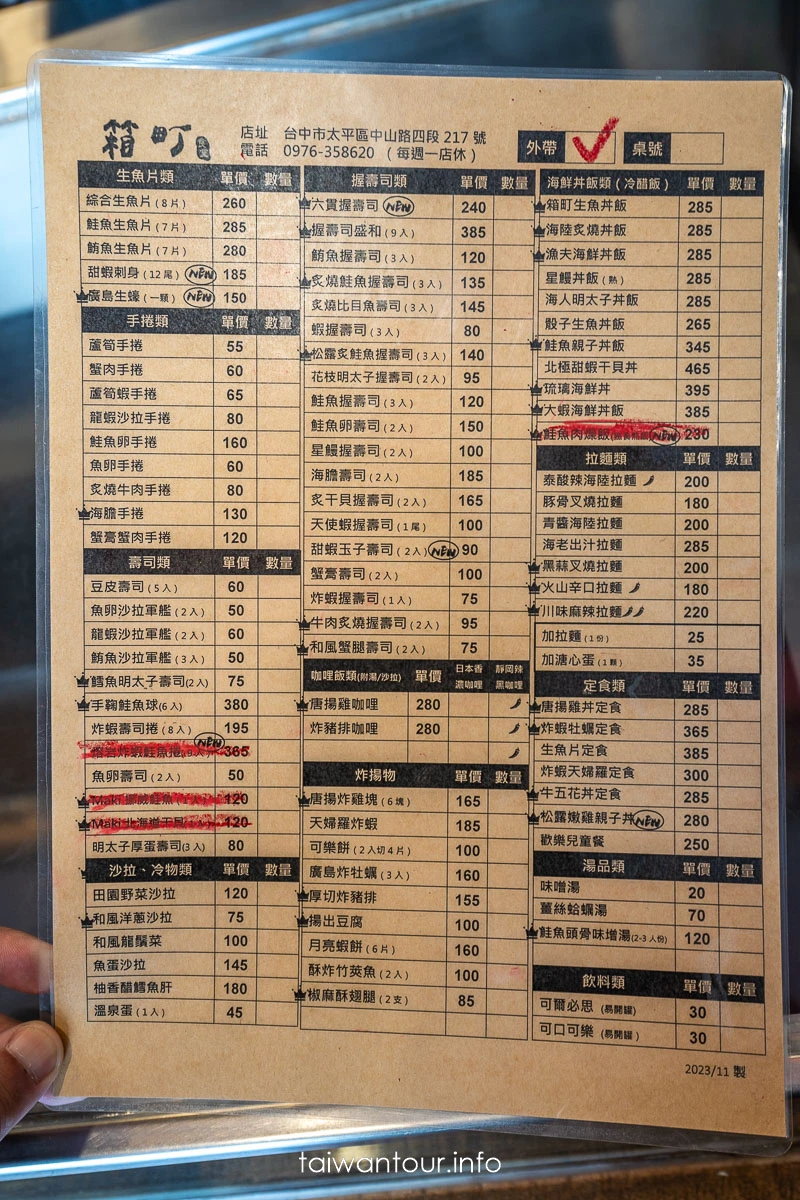 箱町
店址 台中市太平區中山路四段 217 號
電話 0976-358620 （每週一店休）
外帶 ✓ 桌號
生魚片類 單價 數量
綜合生魚片（8片） 260
鮭魚生魚片（7片） 285
鮪魚生魚片（7片） 280
甜蝦刺身（12尾） NEW 185
廣島生蠔（一顆） NEW 150
手捲類 單價 數量
蘆筍手捲 55
蟹肉手捲 60
蘆筍蝦手捲 65
龍蝦沙拉手捲 80
鮭魚卵手捲 160
魚卵手捲 60
炙燒牛肉手捲 80
海膽手捲 130
蟹膏蟹肉手捲 120
壽司類 單價 數量
豆皮壽司（5入） 60
魚卵沙拉軍艦（2入） 50
龍蝦沙拉軍艦（2入） 60
鮪魚沙拉軍艦（3入） 50
鱈魚明太子壽司(2入) 75
手鞠鮭魚球（6入） 380
炸蝦壽司捲（8入） 195
熔岩炸蝦鮭魚捲 NEW 365
魚卵壽司（2入） 50
Maki 120
Maki 北海道干貝 120
明太子厚蛋壽司(3入) 80
沙拉、冷物類 單價 數量
田園野菜沙拉 120
和風洋蔥沙拉 75
和風龍鬚菜 100
魚蛋沙拉 145
柚香醋鱈魚肝 180
溫泉蛋（1入） 45
握壽司類 單價 數量
六貫握壽司 NEW 240
握壽司盛和（9入） 385
鮪魚握壽司（3入） 120
炙燒鮭魚握壽司（3入） 135
炙燒比目魚壽司（3入） 145
蝦握壽司（3入） 80
松露炙鮭魚握壽司（3入） 140
花枝明太子握壽司（2入） 95
鮭魚握壽司（3入） 120
鮭魚卵壽司（2入） 150
星鰻握壽司（2入） 100
海膽壽司（2入） 185
炙干貝握壽司（2入） 165
天使蝦握壽司（1尾） 100
甜蝦玉子壽司（2入） NEW 90
蟹膏壽司（2入） 100
炸蝦握壽司（1入） 75
牛肉炙燒握壽司（2入） 95
和風蟹腿壽司（2入） 75
咖哩飯類(附湯/沙拉) 單價 日本香濃咖哩 靜岡辣黑咖哩
唐揚雞咖哩 280
炸豬排咖哩 280
炸揚物 單價 數量
唐揚炸雞塊（6塊） 165
天婦羅炸蝦 185
可樂餅（2入切4片） 100
廣島炸牡蠣（3入） 160
厚切炸豬排 155
揚出豆腐 100
月亮蝦餅（6片） 160
酥炸竹莢魚（2入） 100
椒麻酥翅腿（2支） 85
海鮮丼飯類（冷醋飯） 單價 數量
箱町生魚丼飯 285
海陸炙燒丼飯 285
漁夫海鮮丼飯 285
星鰻丼飯（熱） 285
海人明太子丼飯 285
骰子生魚丼飯 265
鮭魚親子丼飯 345
北極甜蝦干貝丼 465
琉璃海鮮丼 395
大蝦海鮮丼飯 385
鮭魚肉燥飯 NEW 230
拉麵類 單價 數量
泰酸辣海陸拉麵 200
豚骨叉燒拉麵 180
青醬海陸拉麵 200
海老出汁拉麵 285
黑蒜叉燒拉麵 200
火山辛口拉麵 180
川味麻辣拉麵 220
加拉麵（1份） 25
加溏心蛋（1顆） 35
定食類 單價 數量
唐揚雞丼定食 285
炸蝦牡蠣定食 365
生魚片定食 385
炸蝦天婦羅定食 300
牛五花丼定食 285
松露嫩雞親子丼 NEW 280
歡樂兒童餐 250
湯品類 單價 數量
味噌湯 20
薑絲蛤蠣湯 70
鮭魚頭骨味增湯(2-3人份) 120
飲料類 單價 數量
可爾必思（易開罐） 30
可口可樂（易開罐） 30
2023/11 製
taiwantour.info